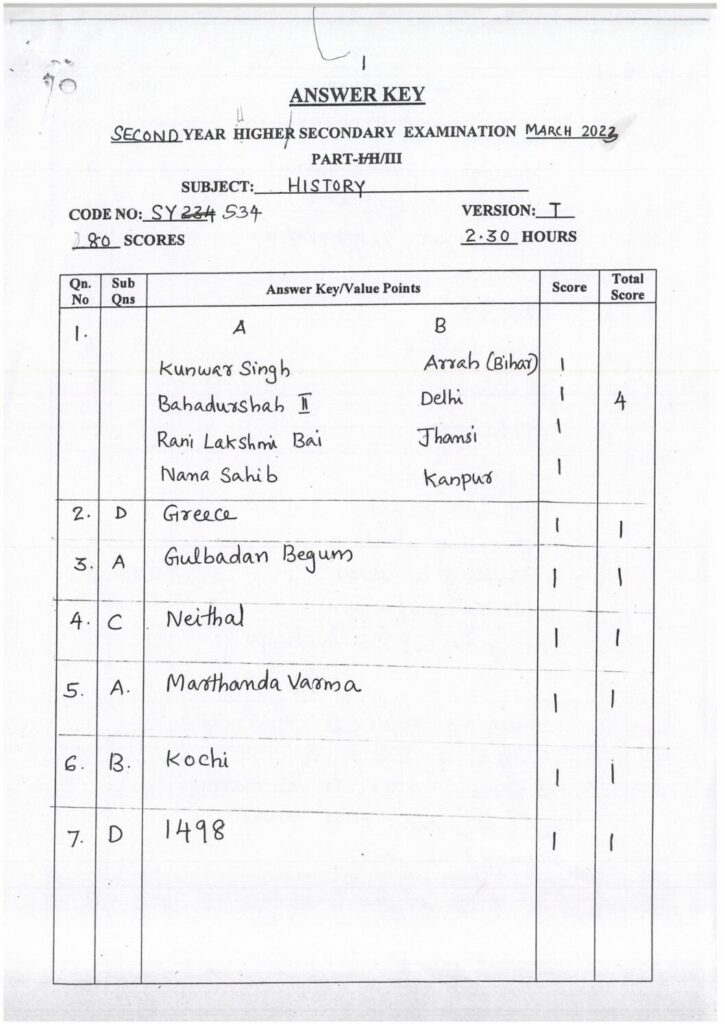 1
ANSWER KEY
SECOND YEAR HIGHER SECONDARY EXAMINATION MARCH 2023
PART-I/II/III
SUBJECT: HISTORY
CODE NO: SY 234 534 VERSION: T
80 SCORES 2.30 HOURS
Qn. No Sub Qns Answer Key/Value Points Score Total Score
1. A B
Kunwar Singh Arrah (Bihar) 1
Bahadurshah II Delhi 1 4
Rani Lakshmi Bai Jhansi 1
Nana Sahib Kanpur 1
2. D Greece 1 1
3. A Gulbadan Begum 1 1
4. C Neithal 1 1
5. A. Marthanda Varma 1 1
6. B. Kochi 1 1
7. D 1498 1 1